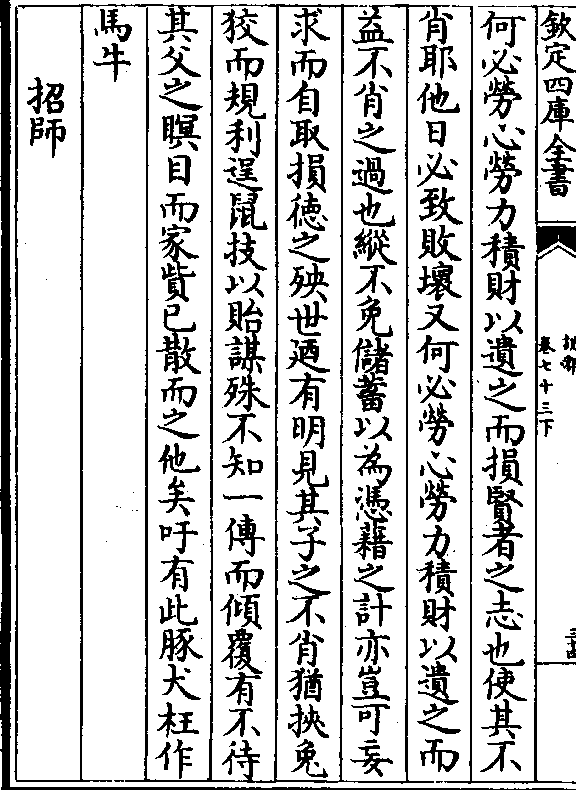 欽定四庫全書
卷七十三下
何必勞心勞力積財以遺之而損賢者之志也使其不
肖耶他日必致敗壞又何必勞心勞力積財以遺之而
益不肖之過也縱不免儲蓄以為憑藉之計亦豈可妄
求而自取損徳之殃世廼有明見其子之不肖猶挾兔
狡而規利逞鼠技以貽謀殊不知一傳而傾覆有不待
其父之瞑目而家貲已散而之他矣吁有此豚犬枉作
馬牛
招師